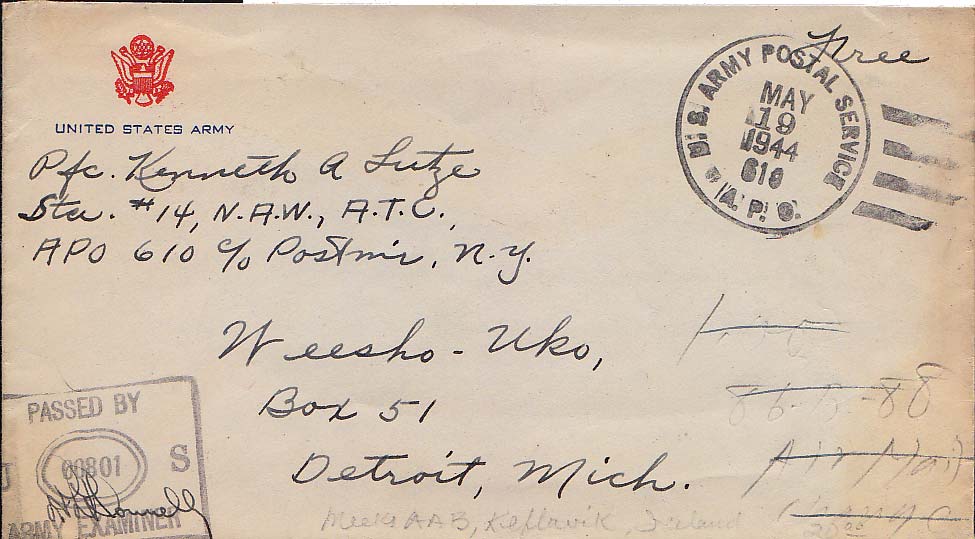 Free
UNITED STATES ARMY
U.S. ARMY POSTAL SERVICE
MAY
19
1944
A.P.O.
Pfc. Kenneth A Lutze
Sta. #14, N.A.W., A.T.C.,
APO 610 c/o Postm'r, N.Y.
Weesho-Uko,
Box 51
Detroit, Mich.
88
Air Mail
PASSED BY
00801
U S
ARMY EXAMINER
Meeks AAB, Keflavik, Iceland
20.00